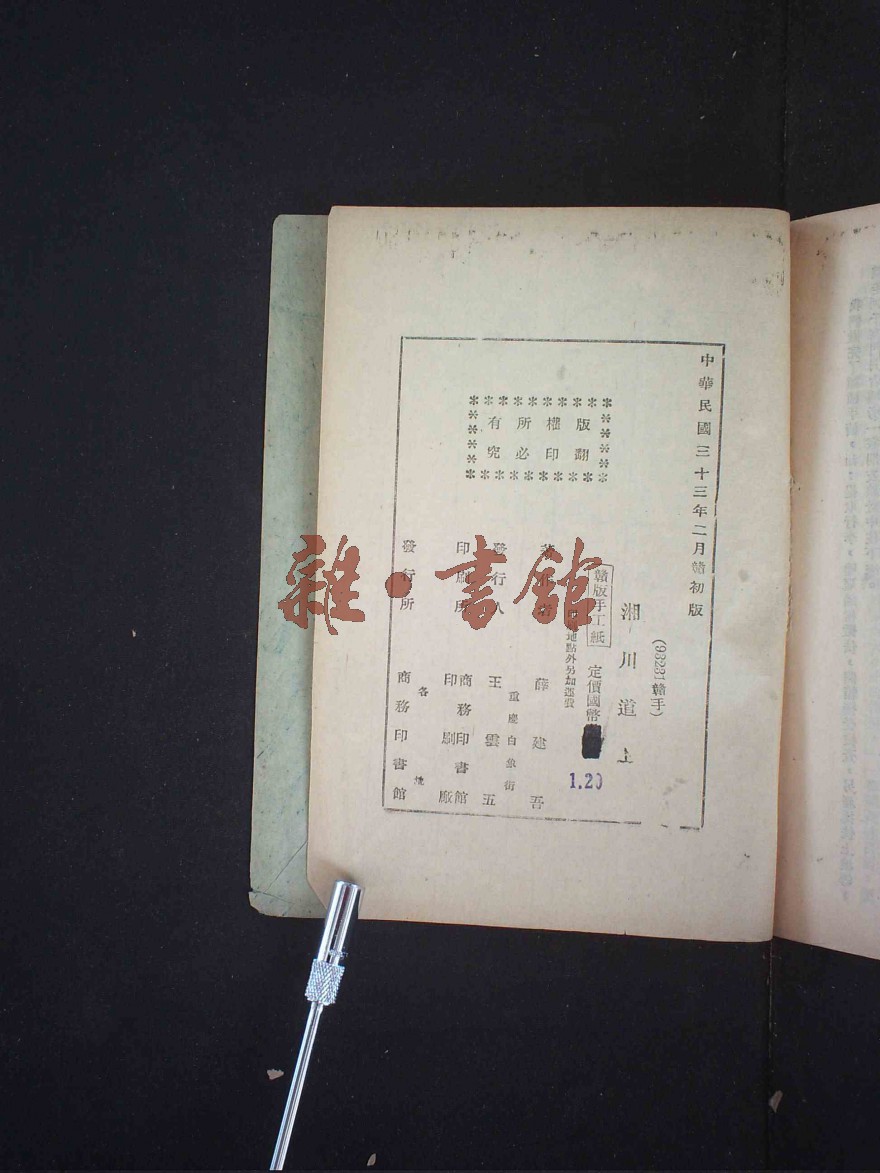 中華民國三十三年二月贛初版
(93231贛手)
湘川道上
贛版手工紙
定價國幣
1.20
地點外另加運費
著作者
薛建吾
重慶白象街
發行人
王雲五
印刷所
商務印書館
印刷廠
各地
發行所
商務印書館
版權所有
翻印必究
雜·書館